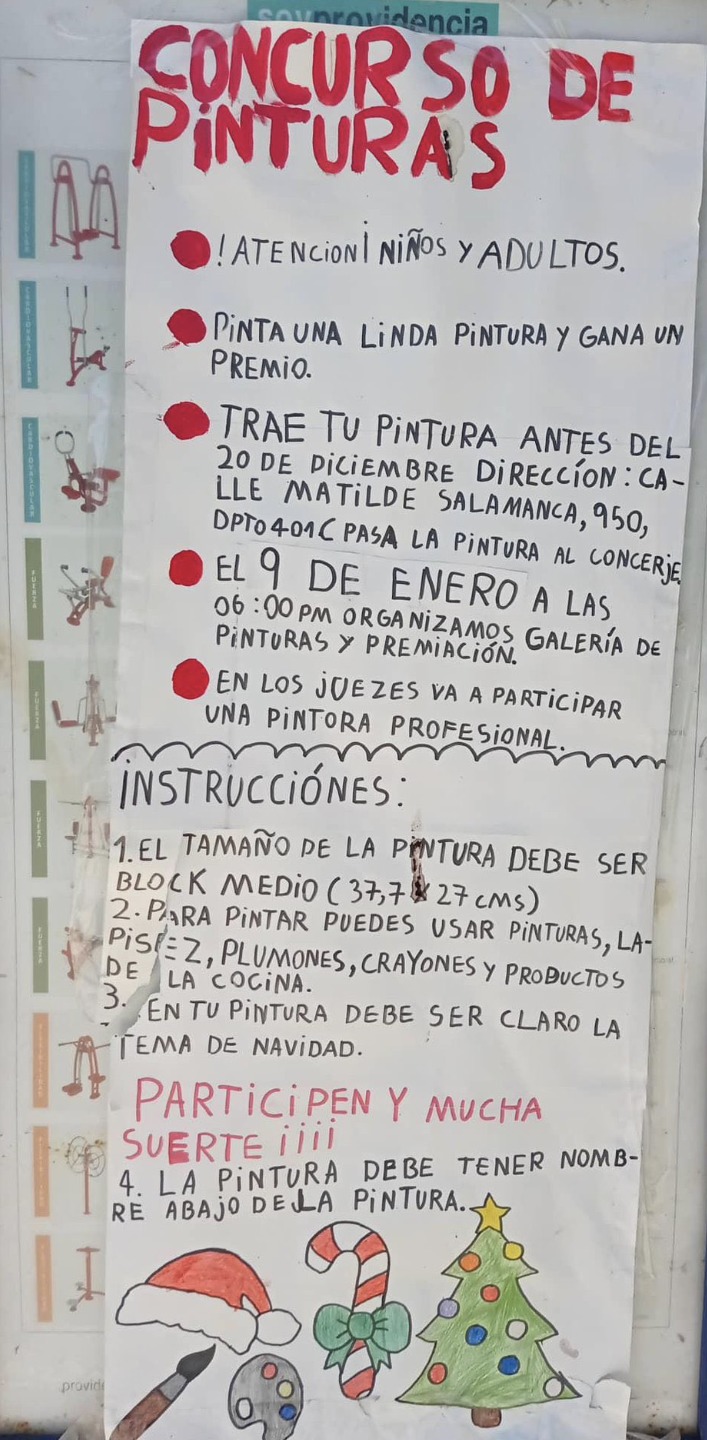 soyprovidencia
CONCURSO DE
PINTURAS
! ATENCION¡ NIÑOS Y ADULTOS.
PINTA UNA LINDA PINTURA Y GANA UN
PREMIO.
TRAE TU PINTURA ANTES DEL
20 DE DICIEMBRE DIRECCÍON: CA-
LLE MATILDE SALAMANCA, 950,
DPTO 401C PASA LA PINTURA AL CONCERJE
EL 9 DE ENERO A LAS
06:00 PM ORGANIZAMOS GALERÍA DE
PINTURAS Y PREMIACIÓN.
EN LOS JUEZES VA A PARTICIPAR
UNA PINTORA PROFESIONAL.
INSTRUCCIÓNES:
1. EL TAMAÑO DE LA PINTURA DEBE SER
BLOCK MEDIO (37,7 X 27 CMS)
2. PARA PINTAR PUEDES USAR PINTURAS, LA-
PISEZ, PLUMONES, CRAYONES Y PRODUCTOS
DE LA COCINA.
3. EN TU PINTURA DEBE SER CLARO LA
TEMA DE NAVIDAD.
PARTICIPEN Y MUCHA
SUERTE ¡¡¡¡
4. LA PINTURA DEBE TENER NOMB-
RE ABAJO DE LA PINTURA.
CARDIOVASCULAR
CARDIOVASCULAR
FUERZA
FUERZA
FUERZA
FUERZA
provide